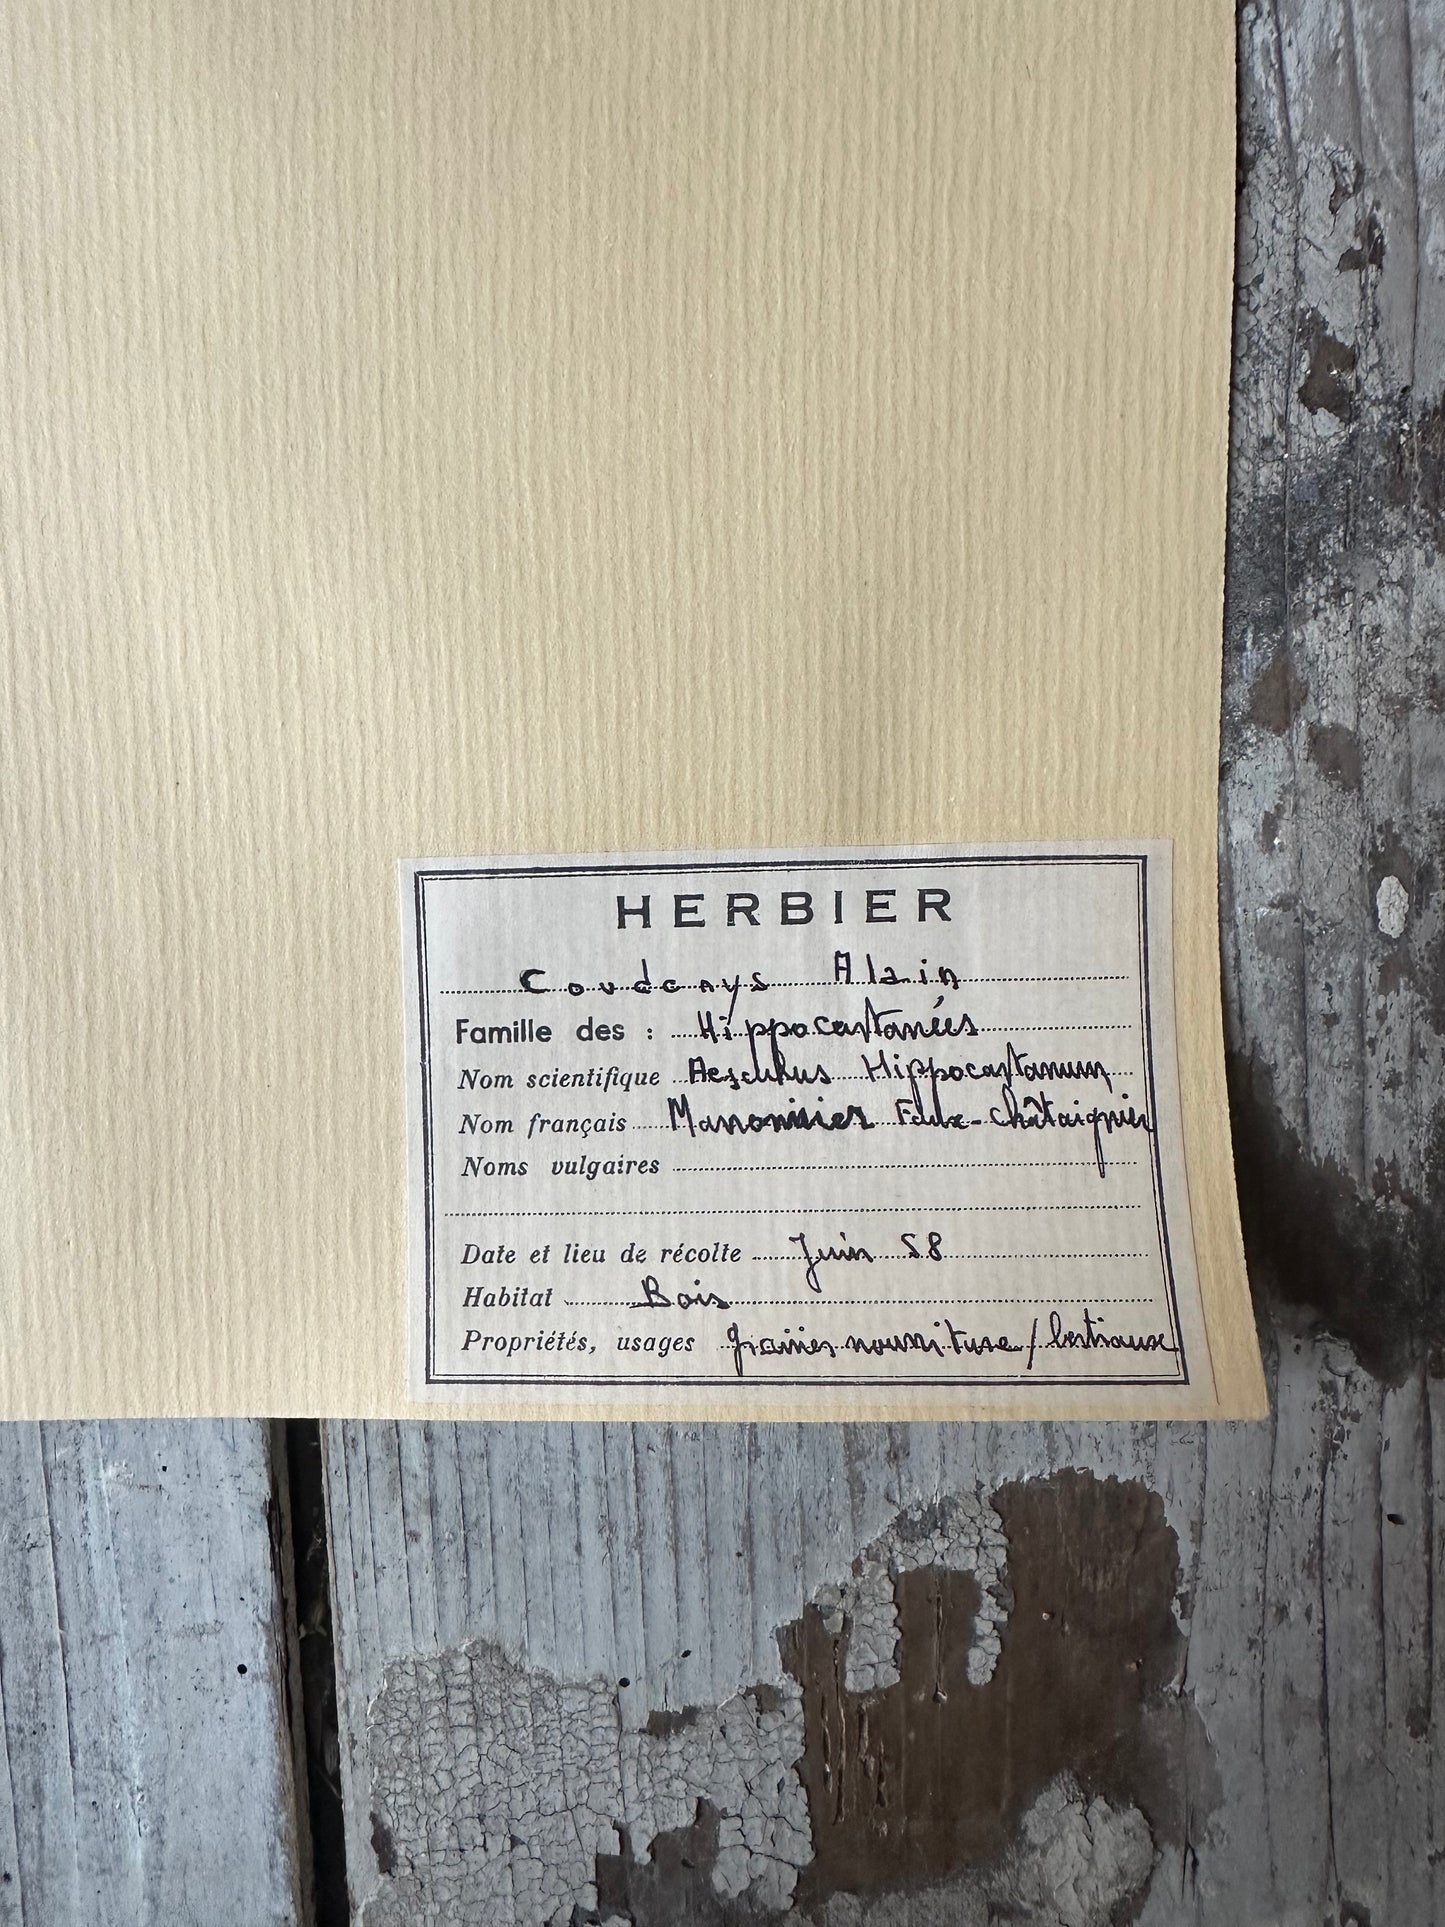 HERBIER
Coudenys Alain
Famille des : Hippocastanées
Nom scientifique Aesculus Hippocastanum
Nom français Maronnier Faux-châtaignier
Noms vulgaires
Date et lieu de récolte Juin 58
Habitat Bois
Propriétés, usages graines nourriture / bestiaux